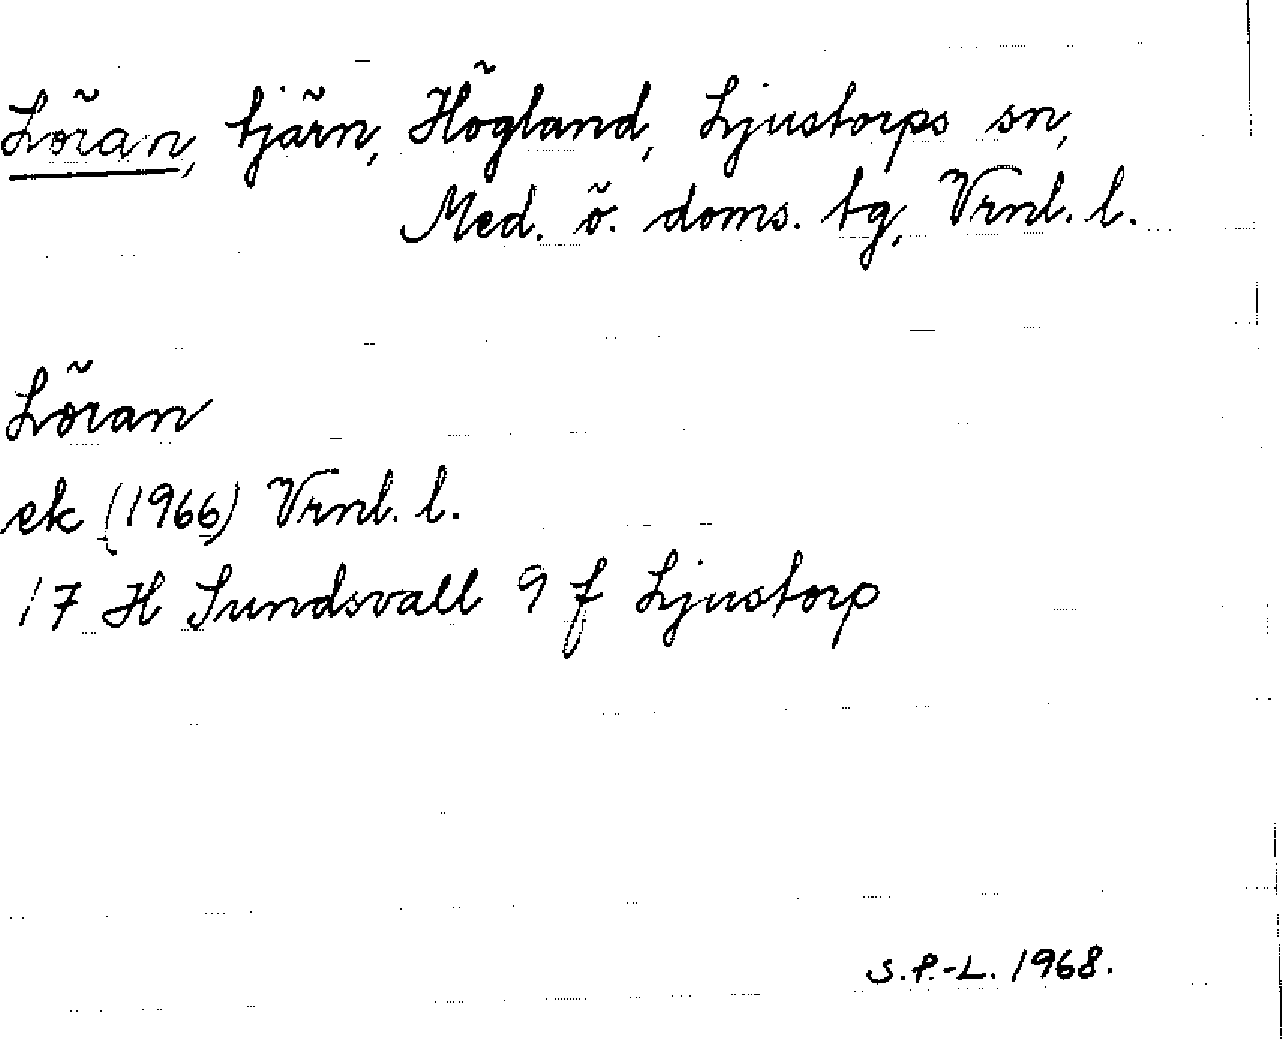 Löran, tjärn, Högland, Ljustorps sn,
Med. ö. doms. tg, Vrnl. l.
Löran
ek (1966) Vrnl. l.
17 H Sundsvall 9 f Ljustorp
S.P.-L. 1968.